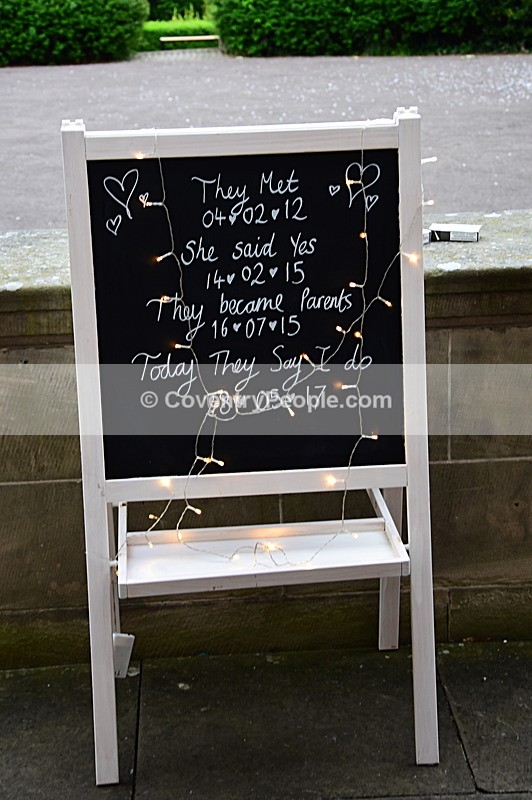 They Met
04♥02♥12
She said Yes
14♥02♥15
They became Parents
16♥07♥15
Today They Say I do
05 17
© CoventryPeople.com